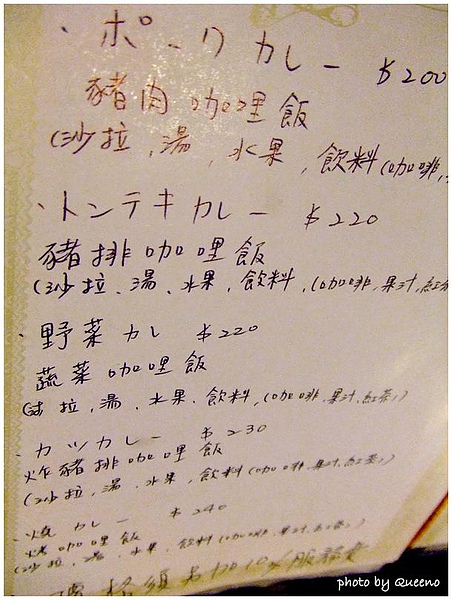 ・ポークカレー $200
豬肉咖哩飯
(沙拉,湯,水果,飲料(咖啡,
・トンテキカレー $220
豬排咖哩飯
(沙拉、湯、水果、飲料,(咖啡,果汁,紅茶
・野菜カレー $220
蔬菜咖哩飯
(沙拉,湯、水果、飲料,(咖啡,果汁,紅茶,)
・カツカレー $230
炸豬排咖哩飯
(沙拉,湯,水果,飲料(咖啡,果汁,紅茶,)
・焼カレー $240
烤咖哩飯
(沙拉,湯,水果,飲料(咖啡,果汁,紅茶,)
另加10%服務費
photo by Queeno